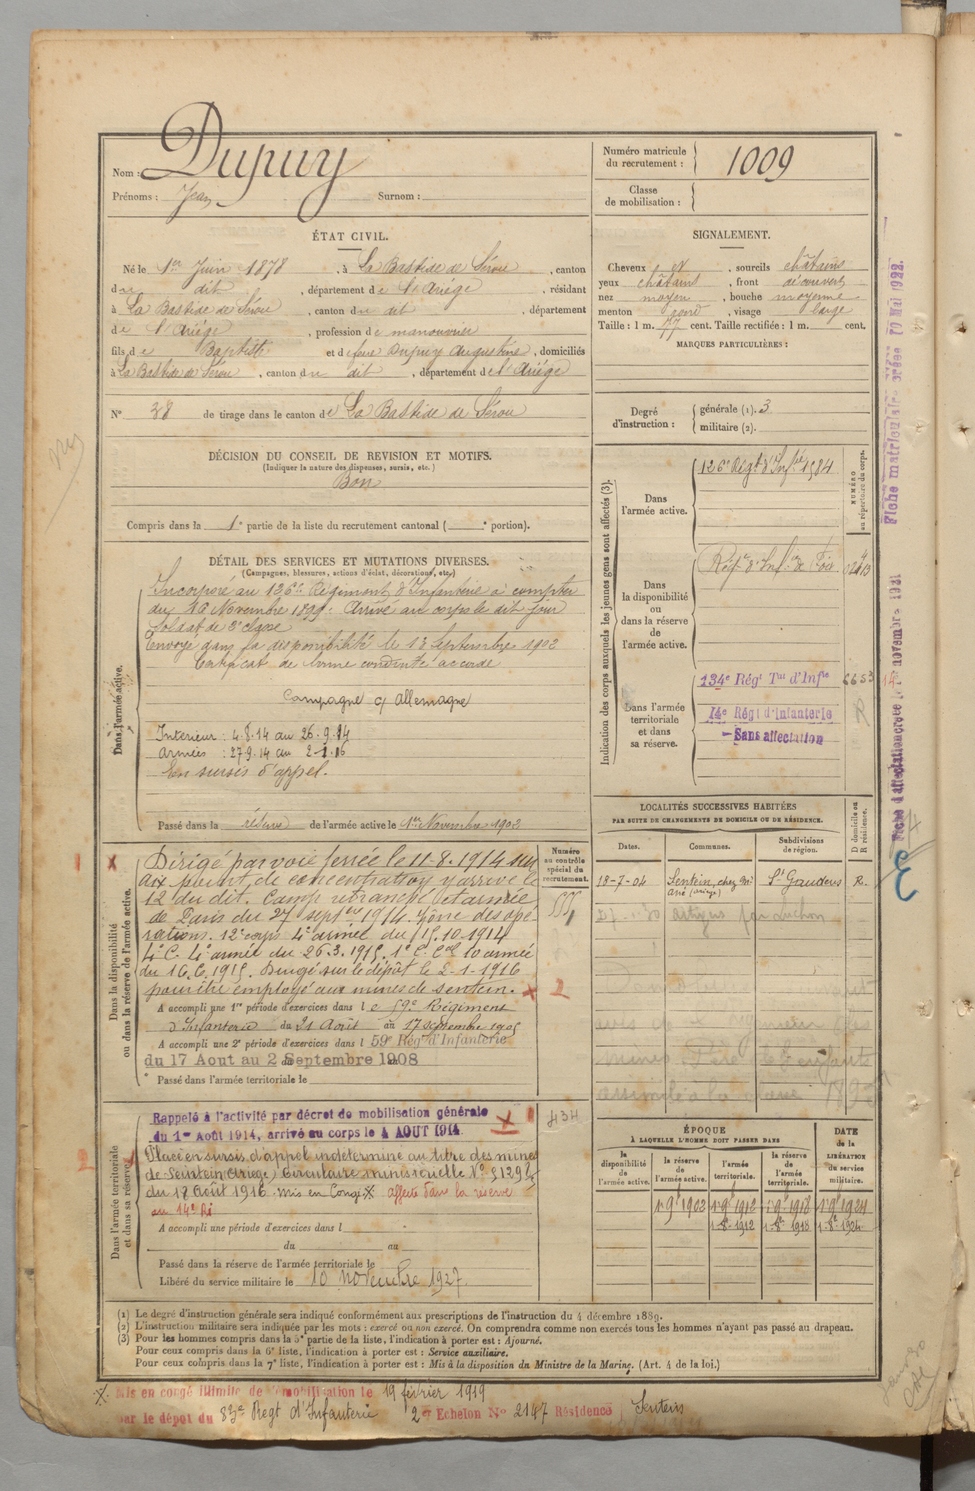 Nom : Dupuy
Prénoms : Jean Surnom :
Numéro matricule du recrutement : 1009
Classe de mobilisation :
ÉTAT CIVIL.
Né le 1er Juin 1878, à La Bastide de Sérou, canton
du dit, département de l'Ariège, résidant
à La Bastide de Sérou, canton du dit, département
de l'Ariège, profession de manouvrier
fils de Baptiste et de feue Dupuy Augustine, domiciliés
à La Bastide de Sérou, canton du dit, département de l'Ariège
N° 38 de tirage dans le canton de La Bastide de Sérou
SIGNALEMENT.
Cheveux et, sourcils châtains
yeux châtains, front découvert
nez moyen, bouche moyenne
menton rond, visage large
Taille : 1 m. 77 cent. Taille rectifiée : 1 m. cent.
MARQUES PARTICULIÈRES :
Degré d'instruction : générale (1). 3
militaire (2).
DÉCISION DU CONSEIL DE REVISION ET MOTIFS.
(Indiquer la nature des dispenses, sursis, etc.)
Bon
Compris dans la 1e partie de la liste du recrutement cantonal ( e portion).
DÉTAIL DES SERVICES ET MUTATIONS DIVERSES.
(Campagnes, blessures, actions d'éclat, décorations, etc.)
Dans l'armée active.
Incorporé au 126e Régiment d'Infanterie à compter
du Novembre 1899. Arrivé au corps le dit jour
Soldat de 2e classe
Envoyé dans la disponibilité le 13 Septembre 1902
Certificat de bonne conduite accordé
Campagne c/ Allemagne
Intérieur : 4.8.14 au 26.9.14
Armées : 27.9.14 au 2-1.16
En sursis d'appel.
Passé dans la réserve de l'armée active le 1er Novembre 1902
Indication des corps auxquels les jeunes gens sont affectés (3).
NUMÉRO au répertoire du corps.
Dans l'armée active.
126e Régt d'Infie 1584
Dans la disponibilité ou dans la réserve de l'armée active.
Régt d'Infie de Foix
Dans l'armée territoriale et dans sa réserve.
134e Régt Tal d'Infie 6653
14e Régt d'Infanterie
Sans affectation
Dans la disponibilité ou dans la réserve de l'armée active.
1 X Dirigé par voie ferrée le 11-8-1914 sur
point de concentration y arrive le
12 du dit. Camp retranché et armée
de Paris du 27 septbre 1914. Zone des opé-
rations. 12e corps 4e armée du 15.10.1914
4e C. 4e armée du 26.3.1915. 1e C. Cal 10 armée
du 16.6.1915. Dirigé sur le dépôt le 2-1-1916
pour être employé aux mines de Sentein. X 2
A accompli une 1re période d'exercices dans le 59e Régiment
d'Infanterie du 21 Août au 17 septembre 1905
A accompli une 2e période d'exercices dans l 59e Régt d'Infanterie
du 17 Aout au 2 Septembre 1908
Passé dans l'armée territoriale le
Numéro au contrôle spécial du recrutement.
LOCALITÉS SUCCESSIVES HABITÉES
PAR SUITE DE CHANGEMENTS DE DOMICILE OU DE RÉSIDENCE.
Dates. Communes. Subdivisions de région. D domicile ou R résidence.
18-7-04 Sentein, chez (Ariège) St Gaudens R.
Artigue par Luchon
Dans l'armée territoriale et dans sa réserve.
Rappelé à l'activité par décret de mobilisation générale
du 1er Août 1914, arrivé au corps le 4 AOUT 1914 X 1
2 X Placé en sursis d'appel indéterminé au titre des mines
de Sentein (Ariège) Circulaire ministérielle N°
du 18 Août 1916. Mis en Congé X affecté dans la réserve
au 14e RI
434
A accompli une période d'exercices dans l
du au
Passé dans la réserve de l'armée territoriale le
Libéré du service militaire le 10 novembre 1927.
ÉPOQUE
À LAQUELLE L'HOMME DOIT PASSER DANS
DATE de la LIBÉRATION du service militaire.
la disponibilité de l'armée active. la réserve de l'armée active. l'armée territoriale. la réserve de l'armée territoriale.
1 9bre 1902 1 9bre 1912 1 9bre 1918 1 9bre 1924
1-8-1912 1-8-1918 1-8-1924
(1) Le degré d'instruction générale sera indiqué conformément aux prescriptions de l'instruction du 4 décembre 1889.
(2) L'instruction militaire sera indiquée par les mots : exercé ou non exercé. On comprendra comme non exercés tous les hommes n'ayant pas passé au drapeau.
(3) Pour les hommes compris dans la 5e partie de la liste, l'indication à porter est : Ajourné.
Pour ceux compris dans la 6e liste, l'indication à porter est : Service auxiliaire.
Pour ceux compris dans la 7e liste, l'indication à porter est : Mis à la disposition du Ministre de la Marine. (Art. 4 de la loi.)
X. Mis en congé illimité de démobilisation le 19 février 1919
par le dépot du 83e Regt d'Infanterie 2e Echelon N° 2147 Résidence Sentein
Fiche matriculaire créée 10 Mai 1922.
Fiche d'affectation créée novembre 1921